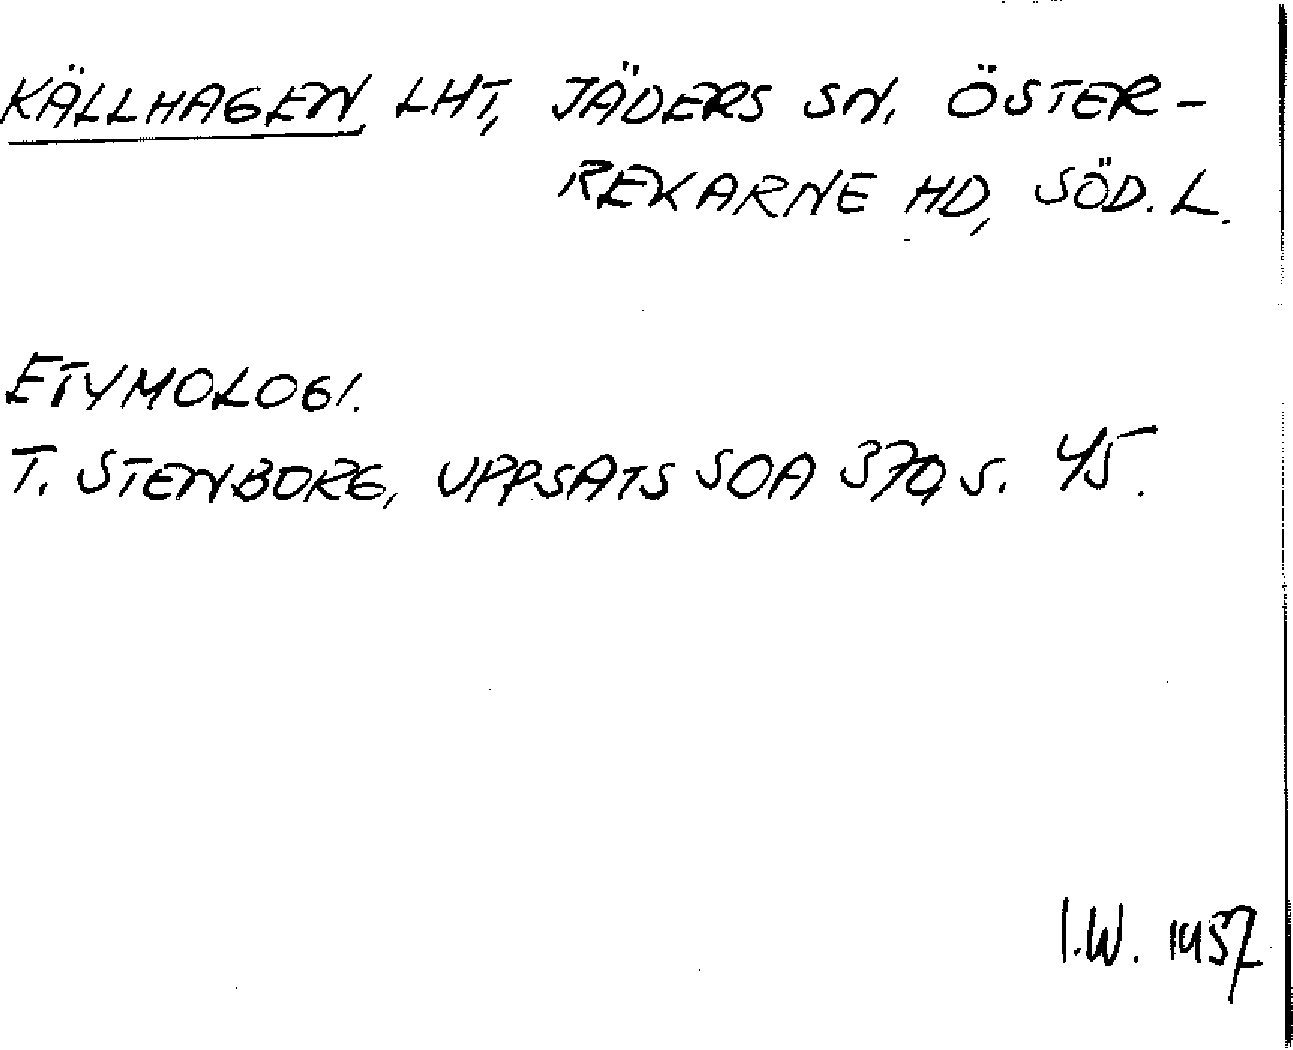 KÄLLHAGEN, LHT, JÄDERS SN. ÖSTER-
REKARNE HD, SÖD. L.
ETYMOLOGI.
T. STENBORG, UPPSATS SOA 370, S. 45.
I.W. 1957